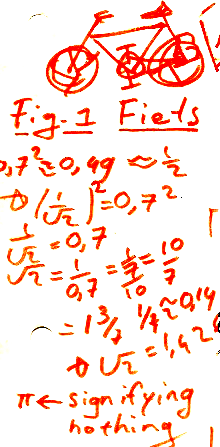 Fig. 1 Fiets
0,7² ≈ 0,49 ≈ 1/2
→ (1/√2)² = 0,7²
1/√2 = 0,7
√2 = 1/0,7 = 1/(7/10) = 10/7
= 1 3/7 1/7 ≈ 0,14
→ √2 = 1,42
π ← signifying
nothing